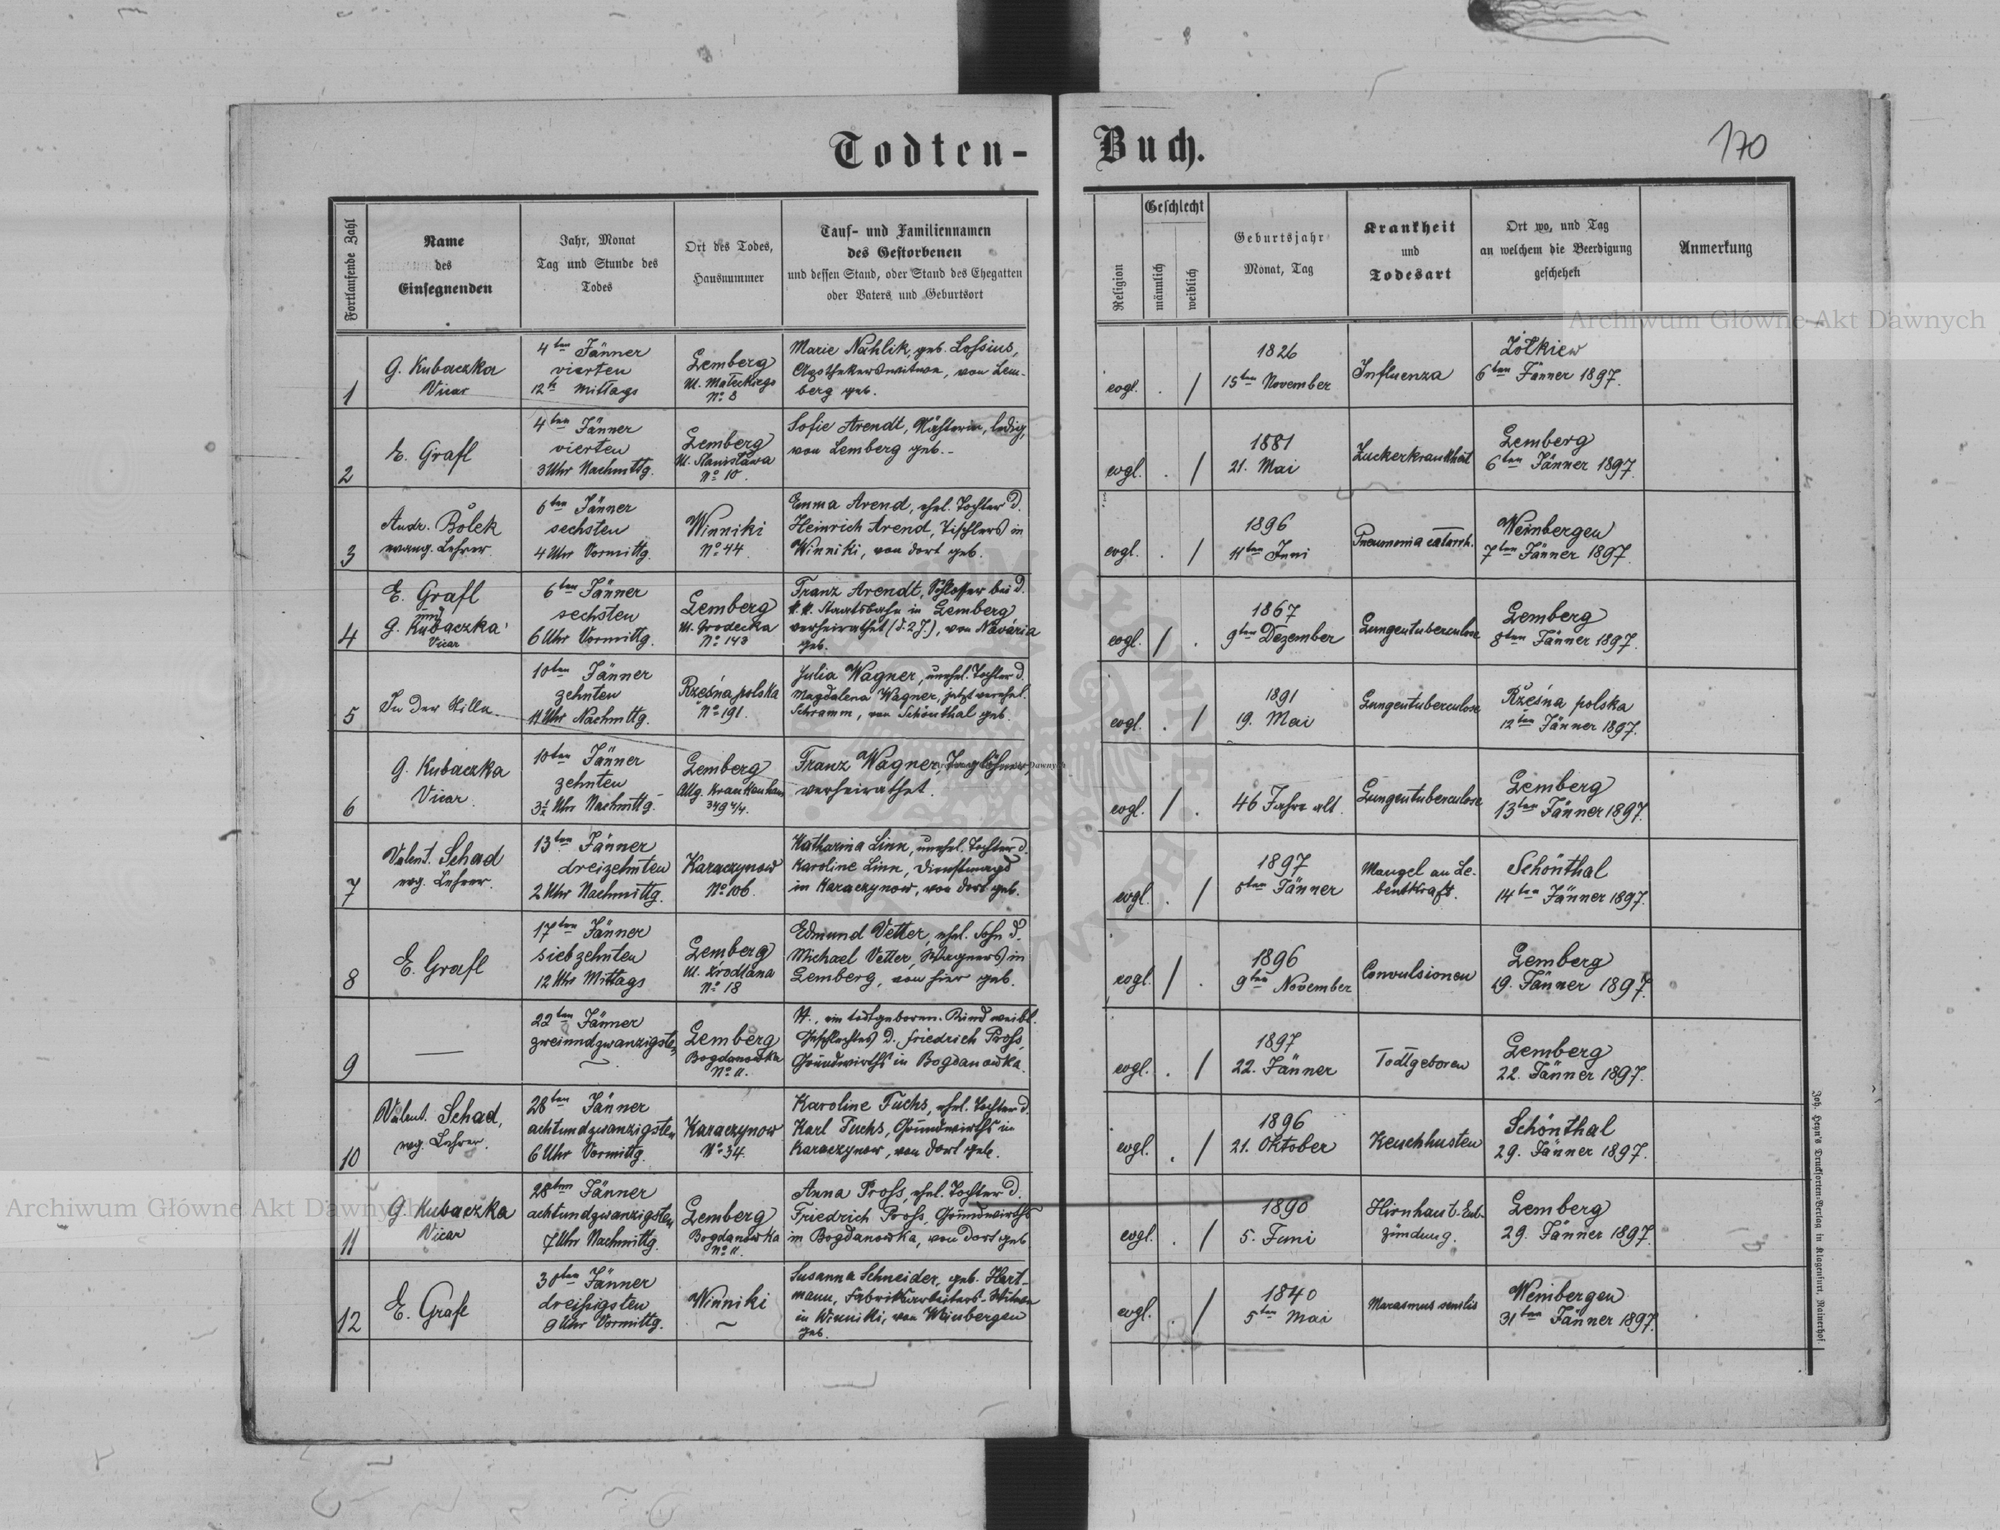 Todten-
Buch.
170
Fortlaufende Zahl
Name
des
Einsegnenden
Jahr, Monat
Tag und Stunde des
Todes
Ort des Todes,
Hausnummer
Tauf- und Familiennamen
des Gestorbenen
und dessen Stand, oder Stand des Ehegatten
oder Vaters und Geburtsort
Religion
Geschlecht
männlich
weiblich
Geburtsjahr
Monat, Tag
Krankheit
und
Todesart
Ort wo, und Tag
an welchem die Beerdigung
geschehen
Anmerkung
1
G. Kubaczka
Vicar
4ten Jänner
vierten
12h Mittags
Lemberg
Ul. Małeckiego
No 8
Marie Nahlik, geb. Lossius,
Apothekerswitwe, von Lem-
berg geb.
evgl. . /
1826
15ten November
Influenza
Żółkiew
6ten Jänner 1897.
2
E. Grafl
4ten Jänner
vierten
3 Uhr Nachmttg.
Lemberg
Ul. Stanisława
No 10.
Sofie Arendt, Näherin, ledig,
von Lemberg geb.-
evgl. . /
1881
21. Mai
Zuckerkrankheit
Lemberg
6ten Jänner 1897.
3
Andr. Bolek
evang. Lehrer
6ten Jänner
sechsten
4 Uhr Vormittg.
Winniki
No 44.
Emma Arend, ehel. Tochter d.
Heinrich Arend, Tischlers in
Winniki, von dort geb.
evgl. . /
1896
11ten Juni
Pneumonia catarrh.
Weinbergen
7ten Jänner 1897.
4
E. Grafl
und
G. Kubaczka
Vicar
6ten Jänner
sechsten
6 Uhr Vormittg.
Lemberg
Ul. Grodecka
No 143
Franz Arendt, Schlosser bei d.
k. k. Staatsbahn in Lemberg
verheirathet (s. 2 J.), von Navária
geb.
evgl. / .
1867
9ten Dezember
Lungentuberculose
Lemberg
8ten Jänner 1897.
5
In der Stille.
10ten Jänner
zehnten
11 Uhr Nachmttg.
Rzesna polska
No 191.
Julia Wagner, unehel. Tochter d.
Magdalena Wagner, jetzt verehel.
Schramm, von Schönthal geb.
evgl. . /
1891
19. Mai
Lungentuberculose
Rzesna polska
12ten Jänner 1897.
6
G. Kubaczka
Vicar.
10ten Jänner
zehnten
3½ Uhr Nachmttg.
Lemberg
Allg. Krankenhaus
349 4/4.
Franz Wagner, Taglöhner,
verheirathet.
evgl. / .
46 Jahre alt
Lungentuberculose
Lemberg
13ten Jänner 1897.
7
Valent. Schad
evg. Lehrer.
13ten Jänner
dreizehnten
2 Uhr Nachmittg.
Karaczynow
No 106.
Katharina Linn, unehel. Tochter d.
Karoline Linn, Dienstmagd
in Karaczynow, von dort geb.
evgl. . /
1897
5ten Jänner
Mangel an Le-
benskraft.
Schönthal
14ten Jänner 1897.
8
E. Grafl
17ten Jänner
siebzehnten
12 Uhr Mittags
Lemberg
Ul. Źródlana
No 18
Edmund Vetter, ehel. Sohn d.
Michael Vetter, Wagners in
Lemberg, von hier geb.
evgl. / .
1896
9ten November
Convulsionen
Lemberg
19. Jänner 1897.
9
—
22ten Jänner
zweiundzwanzigsten
Lemberg
Bogdanowka
No 11.
N., ein todtgeboren. Kind weibl.
Geschlechtes d. Friedrich Pross,
Grundwirths in Bogdanowka.
evgl. . /
1897
22. Jänner
Todtgeboren
Lemberg
22. Jänner 1897.
10
Valent. Schad,
evg. Lehrer.
28ten Jänner
achtundzwanzigsten
6 Uhr Vormittg.
Karaczynow
No 34.
Karoline Fuchs, ehel. Tochter d.
Karl Fuchs, Grundwirths in
Karaczynow, von dort geb.
evgl. . /
1896
21. Oktober
Keuchhusten
Schönthal
29. Jänner 1897.
11
G. Kubaczka
Vicar
28ten Jänner
achtundzwanzigsten
7 Uhr Nachmittg.
Lemberg
Bogdanowka
No 11.
Anna Pross, ehel. Tochter d.
Friedrich Pross, Grundwirths
in Bogdanowka, von dort geb.
evgl. . /
1890
5. Juni
Hirnhaut-Ent-
zündung.
Lemberg
29. Jänner 1897.
12
E. Grafl
30ten Jänner
dreissigsten
9 Uhr Vormittg.
Winniki
Susanna Schneider, geb. Hart-
mann, Fabriksarbeiters-Witwe
in Winniki, von Weinbergen
geb.
evgl. . /
1840
5ten Mai
Marasmus senilis
Weinbergen
31ten Jänner 1897.
Joh. Heyn's Drucksorten-Verlag in Klagenfurt, Rainerhof.
Archiwum Główne Akt Dawnych
Archiwum Główne Akt Dawnych